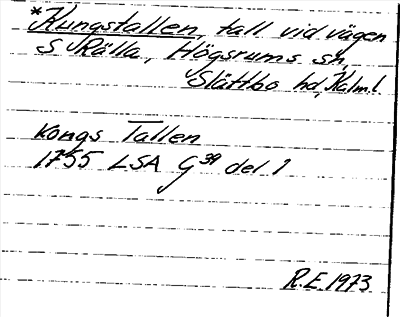 *Kungstallen, tall vid vägen
S Rälla, Högsrums sn,
Slättbo hd, Kalm.l.
Kongs Tallen
1755 LSA G39 del 1
R.E. 1973